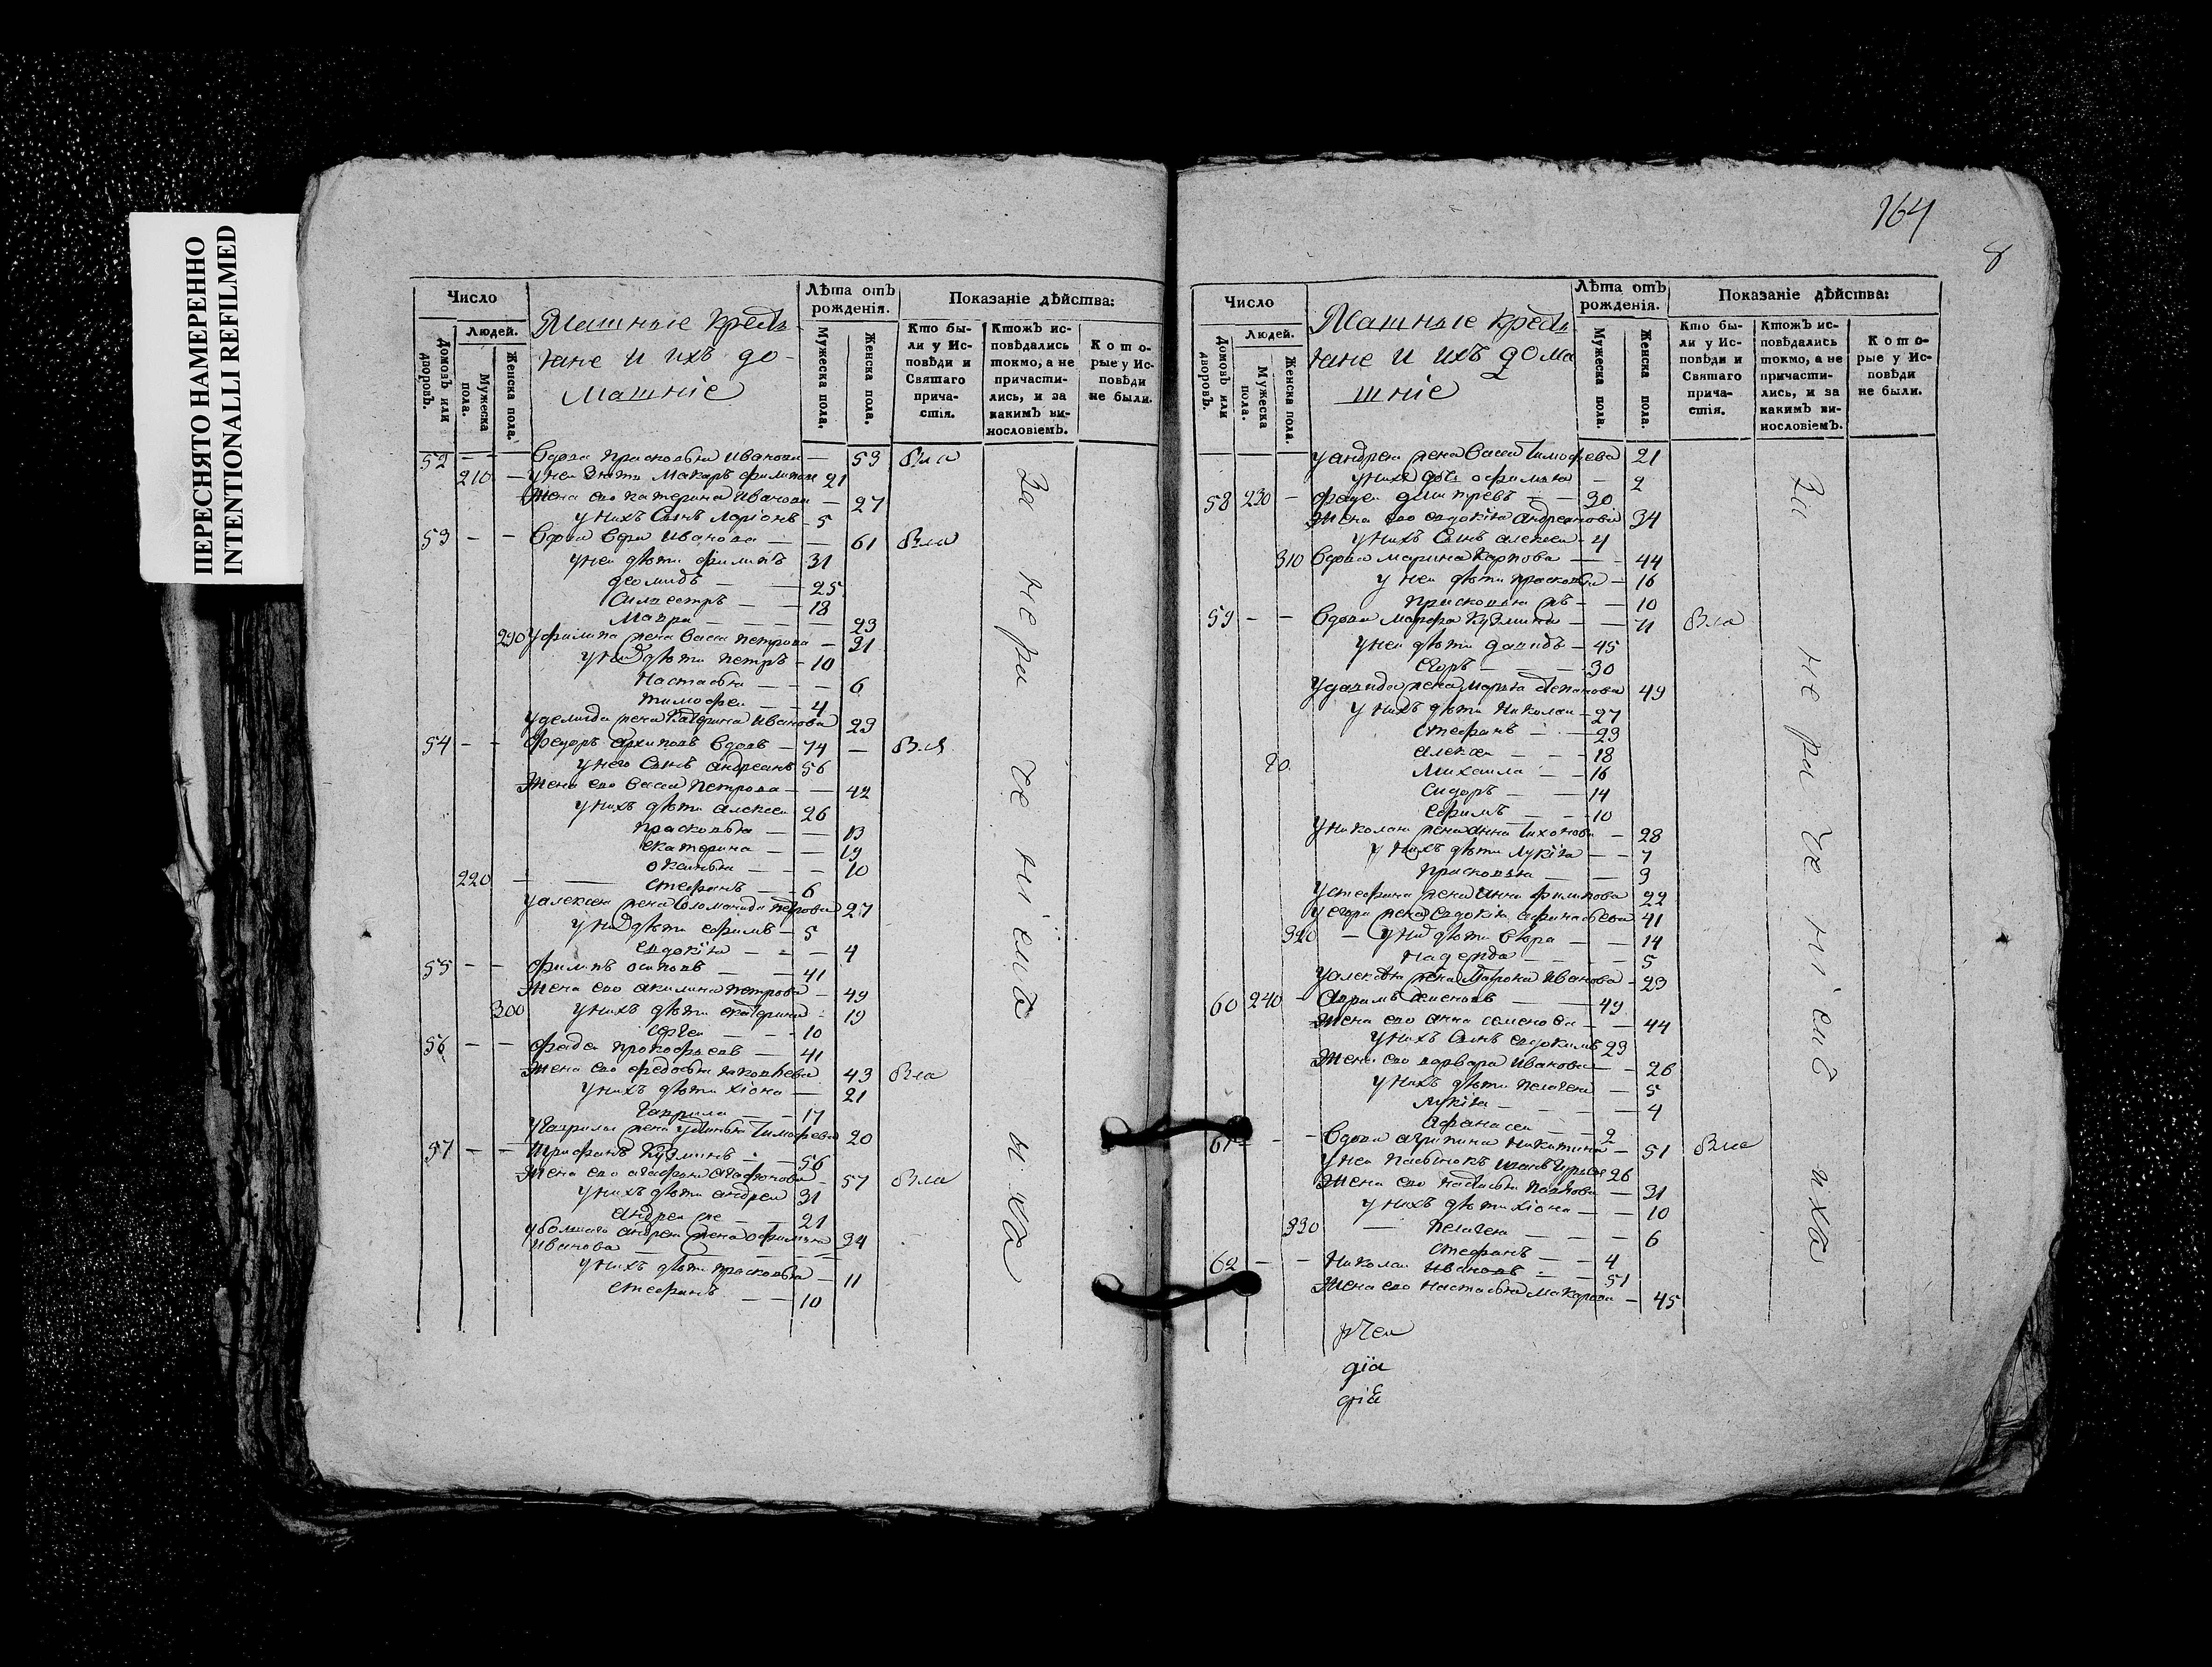 ПЕРЕСНЯТО НАМЕРЕННО
INTENTIONALLI REFILMED
Число
Людей.
Домовъ или дворовъ.
Мужеска пола.
Женска пола.
Пашные кресть
яне и ихъ до-
машніе
Лѣта отъ рожденія.
Мужеска пола.
Женска пола.
Показаніе дѣйства:
Кто бы-
ли у Ис-
повѣди и
Святаго
прича-
стія.
Ктожъ ис-
повѣдались
токмо, а не
причасти-
лись, и за
какимъ ви-
нословіемъ.
Кото-
рые у Ис-
повѣди
не были.
52 - - Вдова Прасковья Иванова — 59 Вла
210 — у неи зять Макаръ Филипов 21
Жена его Катерина Иванова — 27
у нихъ сынъ Ларіонъ - 5
53 - - Вдова Иванова — — 61 Вла
у неи дѣти Филипъ 31
Деомидъ — — 25
Силвестръ — — 18
Мавра — — — 23
290 у Филипа жена Васса Петрова — 31
у них дѣти Петръ - 10
Настасья — — — 6
Тимофеи — — 4
у Демида жена Катерина Иванова 23
54 - - Федоръ Архиповъ вдовъ — 74 — Вла
у него сынъ Андреанъ 56
Жена его Васса Петрова — — 42
у нихъ дѣти Алексеи 26
Прасковья — — 13
Екатерина — — 19
— — — 10
220 — — Стефанъ — — 6
у Алексея жена Соломанида Петрова 27
у них дѣти Ефимъ — 5
Евдокія — - — 4
55 - - Филипъ Осиповъ — — 41
Жена его Акилина Петрова — 49
300 у нихъ дѣти Екатерина - 19
Сергеи — — 10
56 - - Фадеи Прокофьевъ — 41
Жена его Федосья Яковлева 43 Вла
у нихъ дѣти Хіона — 21
Гаврила — — 17
у Гаврилы жена Устинья Тимофева 20
57 - - Трифанъ Кузминъ - — 56
Жена его Агафья Агафонова - 57 Вла
у нихъ дѣти Андреи 31
Андреи же — — 21
у большаго Андрея жена Офимья 34
Иванова — — — —
у нихъ дѣти Прасковья — 11
Стефанъ — — 10
За нерачениіемъ ихъ
164
8
Число
Людей.
Домовъ или дворовъ.
Мужеска пола.
Женска пола.
Пашные кресть
яне и ихъ дома
шніе
Лѣта отъ рожденія.
Мужеска пола.
Женска пола.
Показаніе дѣйства:
Кто бы-
ли у Ис-
повѣди и
Святаго
прича-
стія.
Ктожъ ис-
повѣдались
токмо, а не
причасти-
лись, и за
какимъ ви-
нословіемъ.
Кото-
рые у Ис-
повѣди
не были.
у Андрея жена Васса Тимофева 21
у нихъ дочь Офимья — 2
58 230 - Фадеи Дмитревъ — — 30
Жена его Евдокія Андреанова 34
у нихъ сынъ Алексеи - 4
310 Вдова Марина Карпова — - 44
у неи дѣти Прасковья — 16
Прасковья жъ — — 10
59 - - Вдова Марфа Кузмина — — 71 Вла
у неи дѣти Давидъ — 45
Егоръ — — 30
у Давида жена Марья Степанова 49
у нихъ дѣти Николаи - 27
Стефанъ — — 23
Алексеи — — 18
20. Михаила — — 16
Сидоръ — — 14
Ефимъ — — 10
у Николая жена Анна Тихонова — 28
у нихъ дѣти Лукія — — 7
Прасковья — — 3
у Стефана жена Анна Филипова 22
у Егора жена Евдокія Афанасьева 41
320 — у них дѣти Вѣра — — 14
Надежда — — 5
у Алексея жена Иванова - 23
60 240 - Семеновъ — — 49
Жена его Анна Семенова — — 44
у нихъ сынъ Евдокимъ 23
Жена его Варвара Иванова — — 26
у нихъ дѣти Пелагея — 5
Лукія — — — 4
Афанасеи — — 2
61 - - Вдова Агрипина Никитина - 51 Вла
у неи пасынокъ Иванъ 26
Жена его Настасья — 31
у нихъ дѣти Хіона — — 10
330 — Пелагея — — — 6
Стефанъ — — 4
62 — — Николаи Ивановъ — — 51
Жена его Настасья Макарова — 45
За нерачениіемъ ихъ